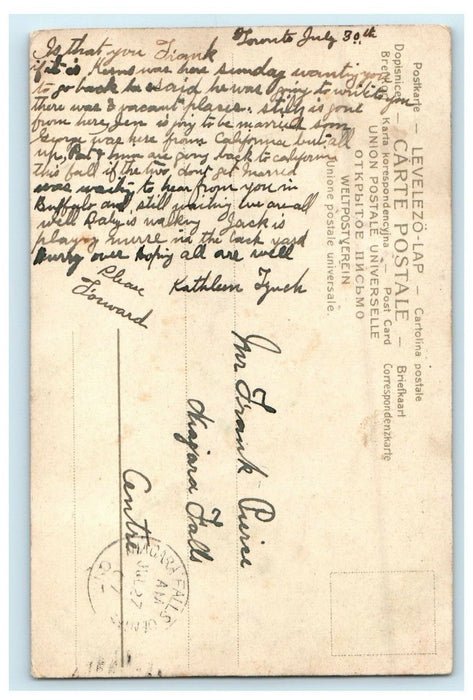 Toronto July 30th
Is that you Frank
if it is Kerns was here sunday wanting you
to go back he said he was going to write you
there was 3 vacant places. still is gone
from here, Jen is going to be married soon
George was here from California but all
up, Pat & mum are going back to california
this fall if the two, dont get married
was waiting to hear from you in
Buffalo and still waiting we are all
well Baby is walking Jack is
playing nurse in the back yard
hurry over hoping all are well
Kathleen Lynch
Please
Forward
Postkarte — LEVELEZÖ-LAP — Cartolina postale
Dopisnice — CARTE POSTALE — Briefkaart
Karta korespondencyjna — Post Card Correspondenzkarte
UNION POSTALE UNIVERSELLE
ОТКРЫТОЕ ПИСЬМО
WELTPOSTVEREIN
Unione postale universale.
Mr Frank Pierce
Niagara Falls
Centre
NIAGARA FALLS
AM
JUL 27
ONT